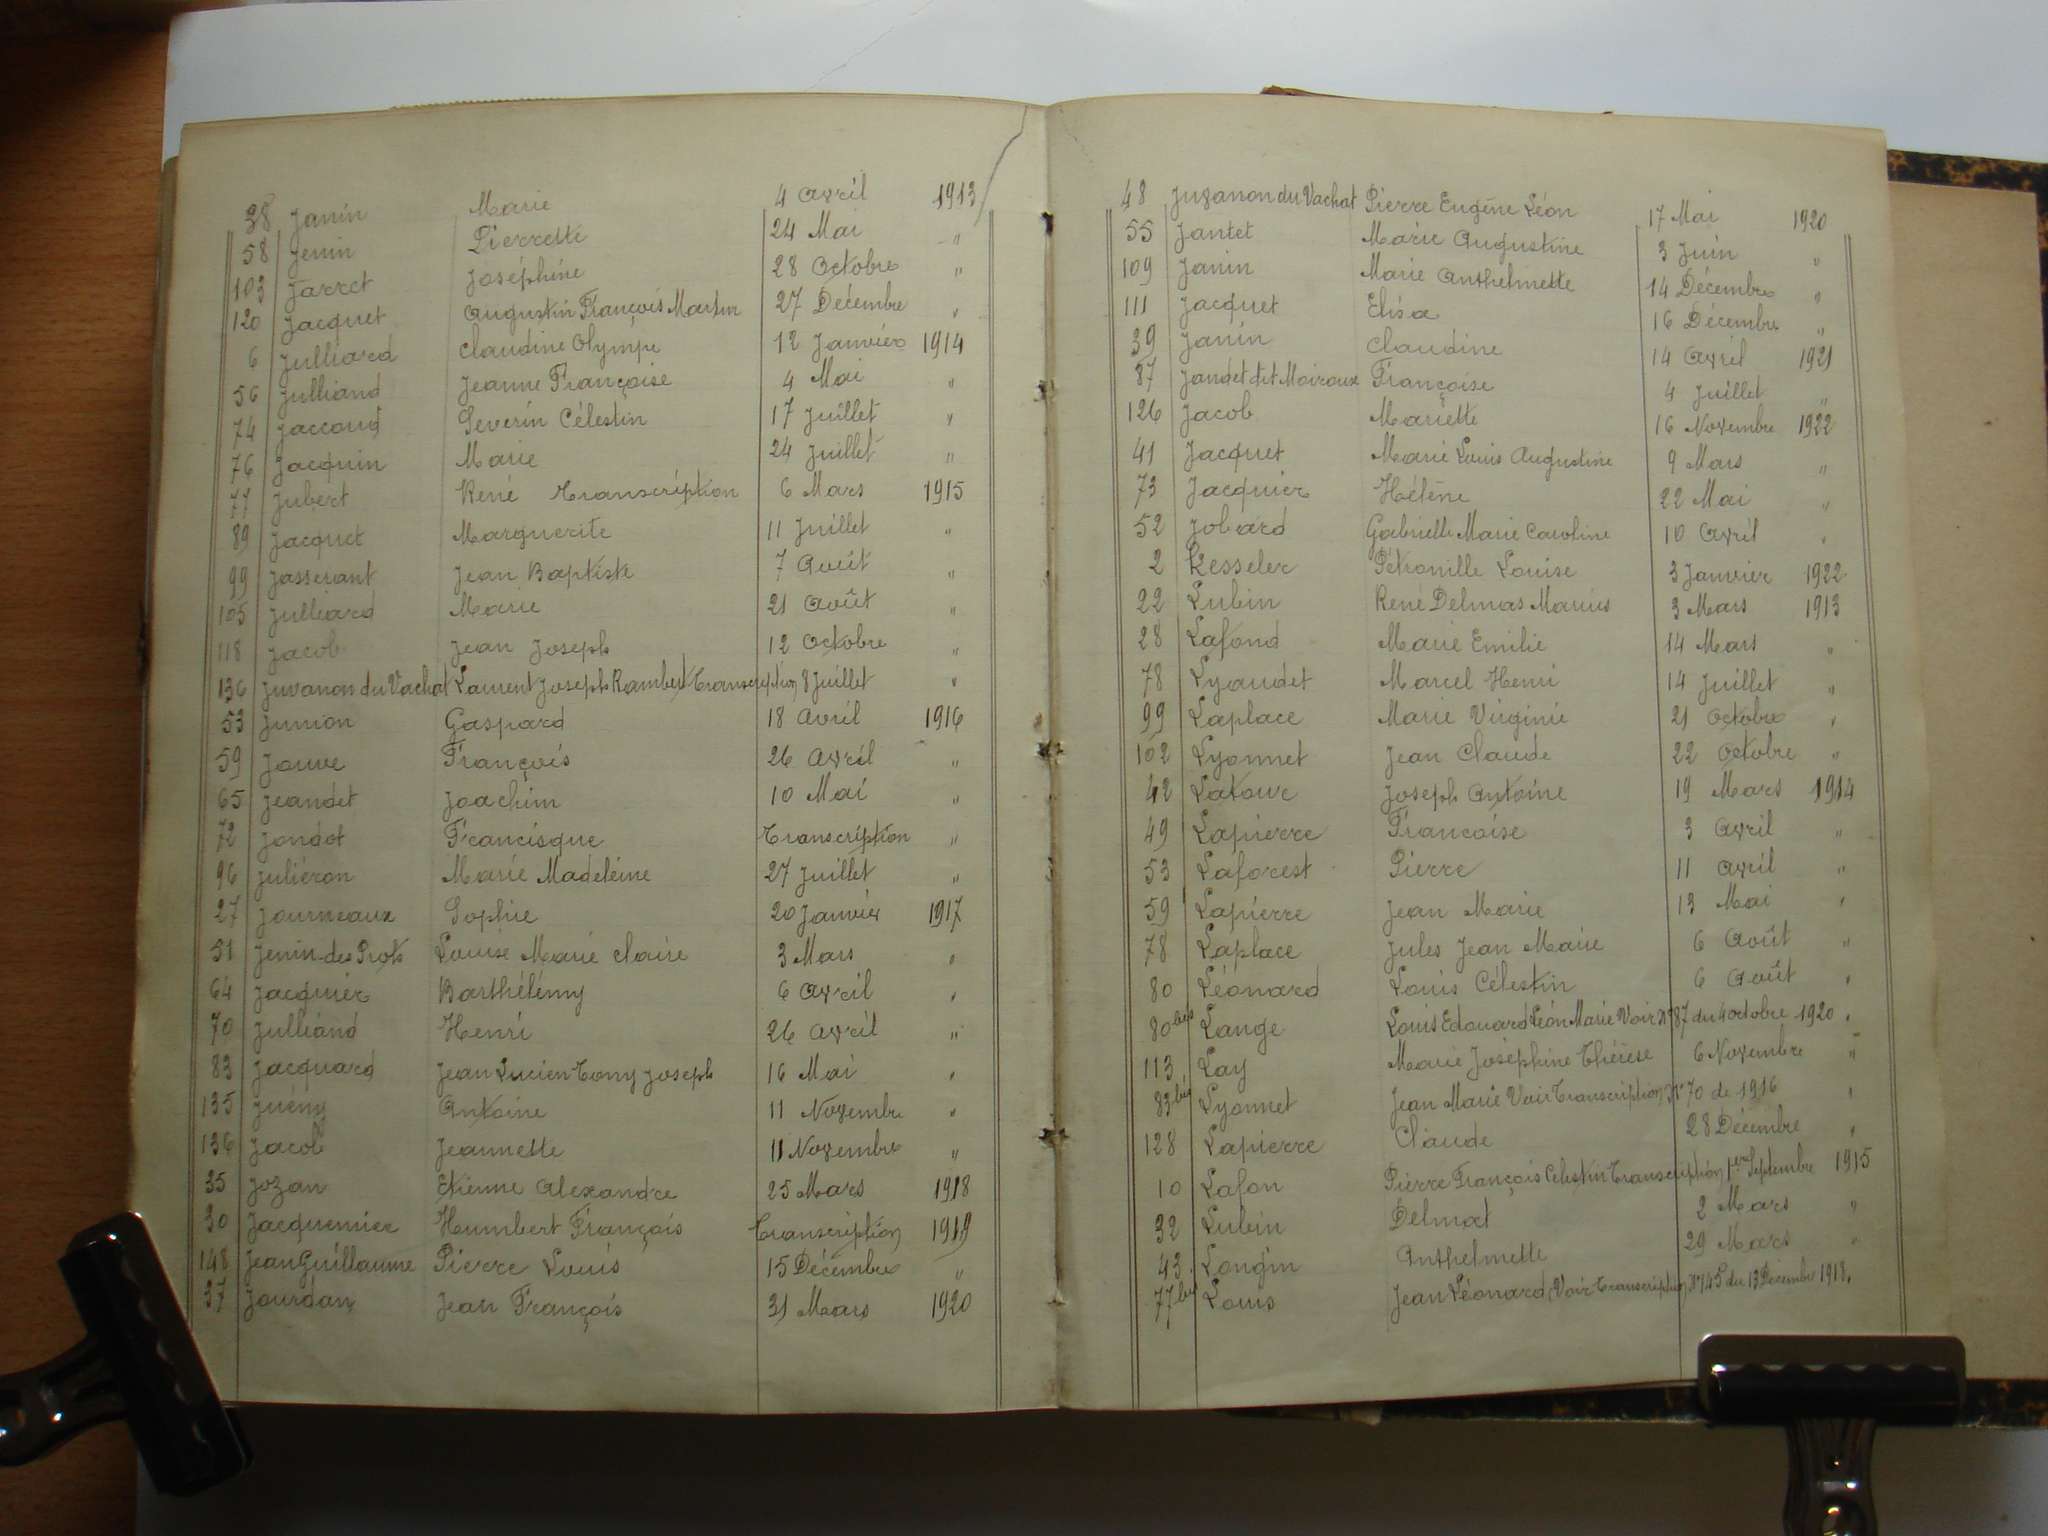 38 Janin Marie 4 Avril 1913
58 Jenin Pierrette 24 Mai "
103 Jarret Joséphine 28 Octobre "
120 Jacquet Augustin François Martin 27 Décembre "
6 Julliard Claudine Olympe 12 Janvier 1914
56 Julliand Jeanne Françoise 4 Mai "
74 Jaccoud Severin Célestin 17 Juillet "
76 Jacquin Marie 24 Juillet "
77 Jubert René Transcription 6 Mars 1915
89 Jacquet Marguerite 11 Juillet "
99 Jasserant Jean Baptiste 7 Août "
105 Julliard Marie 21 Août "
118 Jacob Jean Joseph 12 Octobre "
136 Juvanon du Vachat Laurent Joseph Rambert Transcription 8 Juillet "
53 Junion Gaspard 18 Avril 1916
59 Jouve François 26 Avril "
65 Jeandet Joachim 10 Mai "
72 Jondot Francisque Transcription "
96 Juliéron Marie Madeleine 27 Juillet "
27 Journeaux Sophie 20 Janvier 1917
51 Jenin-des Prots Louise Marie Claire 3 Mars "
64 Jacquier Barthélémy 6 Avril "
70 Julliand Henri 26 Avril "
83 Jacquard Jean Lucien Tony Joseph 16 Mai "
135 Juény Antoine 11 Novembre "
136 Jacob Jeannette 11 Novembre "
35 Jozan Etienne Alexandre 25 Mars 1918
30 Jacquemier Humbert François Transcription 1919
148 Jean Guillaume Pierre Louis 15 Décembre "
37 Jourdan Jean François 31 Mars 1920
48 Juvanon du Vachat Pierre Eugène Léon 17 Mai 1920
55 Jantet Marie Augustine 3 Juin "
109 Janin Marie Anthelmette 14 Décembre "
111 Jacquet Elisa 16 Décembre "
39 Janin Claudine 14 Avril 1921
87 Jandet dit Moiroux Françoise 4 Juillet "
126 Jacob Mariette 16 Novembre 1922
41 Jacquet Marie Louis Augustine 9 Mars "
73 Jacquier Hélène 22 Mai "
52 Jobard Gabrielle Marie Caroline 10 Avril "
2 Kesseler Pétronille Louise 3 Janvier 1922
22 Lubin René Delmas Marius 3 Mars 1913
28 Lafond Marie Emilie 14 Mars "
78 Lyaudet Marcel Henri 14 Juillet "
99 Laplace Marie Virginie 21 Octobre "
102 Lyonnet Jean Claude 22 Octobre "
42 Latour Joseph Antoine 19 Mars 1914
49 Lapierre Françoise 3 Avril "
53 Laforest Pierre 11 Avril "
59 Lapierre Jean Marie 13 Mai "
78 Laplace Jules Jean Marie 6 Août "
80 Léonard Louis Célestin 6 Août "
80 bis Lange Louis Edouard Léon Marie Voir N° 87 du 4 octobre 1920 "
113 Lay Marie Joséphine Thérèse 6 Novembre "
83 bis Lyonnet Jean Marie Voir Transcription N° 70 de 1916 "
128 Lapierre Claude 28 Décembre "
10 Lafon Pierre François Celestin Transcription 1er Septembre 1915
32 Lubin Delmat 2 Mars "
43 Longin Anthelmette 29 Mars "
77 bis Louis Jean Léonard Voir Transcription N° 145 du 13 Décembre 1918.